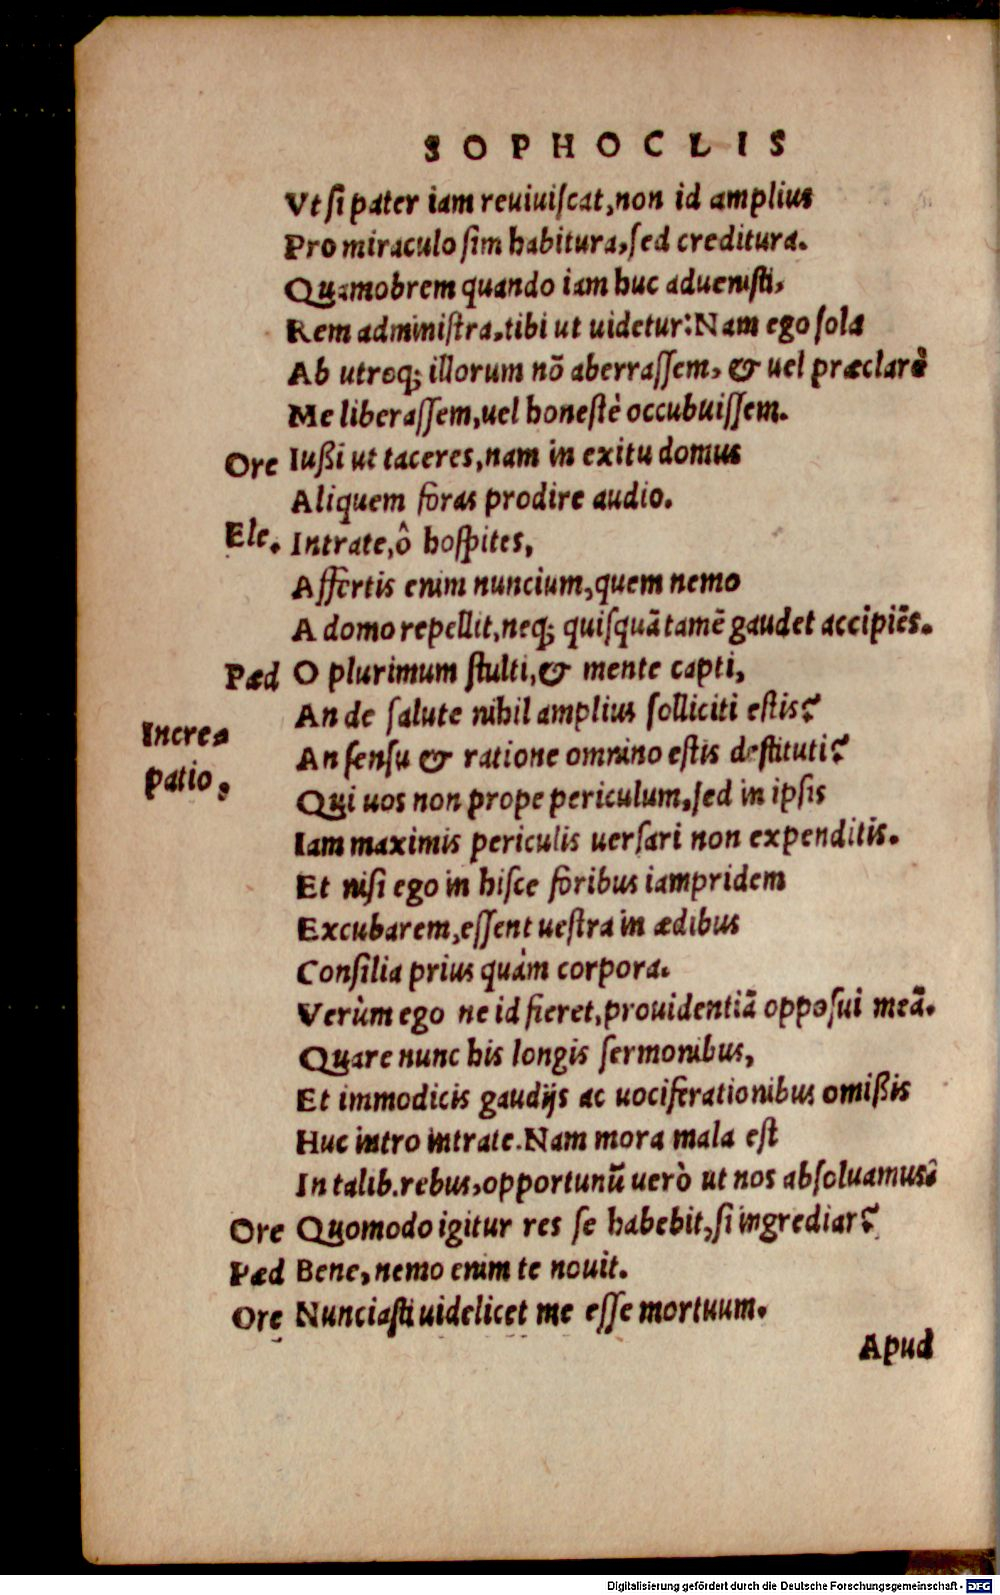 SOPHOCLIS
Vt ſi pater iam reuiuiſcat, non id amplius
Pro miraculo ſim habitura, ſed creditura.
Quamobrem quando iam huc adueniſti,
Rem adminiſtra, tibi ut uidetur: Nam ego ſola
Ab utroq; illorum nō aberraſſem, & uel præclarè
Me liberaſſem, uel honeſtè occubuiſſem.
Ore Iußi ut taceres, nam in exitu domus
Aliquem foras prodire audio.
Ele. Intrate, ô hoſpites,
Affertis enim nuncium, quem nemo
A domo repellit, neq; quiſquā tamē gaudet accipiēs.
Pæd O plurimum ſtulti, & mente capti,
An de ſalute nihil amplius ſolliciti eſtis?
Incre-
patio.
An ſenſu & ratione omnino eſtis deſtituti?
Qui uos non prope periculum, ſed in ipſis
Iam maximis periculis uerſari non expenditis.
Et niſi ego in hiſce foribus iampridem
Excubarem, eſſent ueſtra in ædibus
Conſilia prius quàm corpora.
Verùm ego ne id fieret, prouidentiā oppoſui meā.
Quare nunc his longis ſermonibus,
Et immodicis gaudijs ac uociferationibus omißis
Huc intro intrate. Nam mora mala eſt
In talib. rebus, opportunū uerò ut nos abſoluamus.
Ore Quomodo igitur res ſe habebit, ſi ingrediar?
Pæd Bene, nemo enim te nouit.
Ore Nunciaſti uidelicet me eſſe mortuum.
Apud
Digitalisierung gefördert durch die Deutsche Forschungsgemeinschaft - DFG